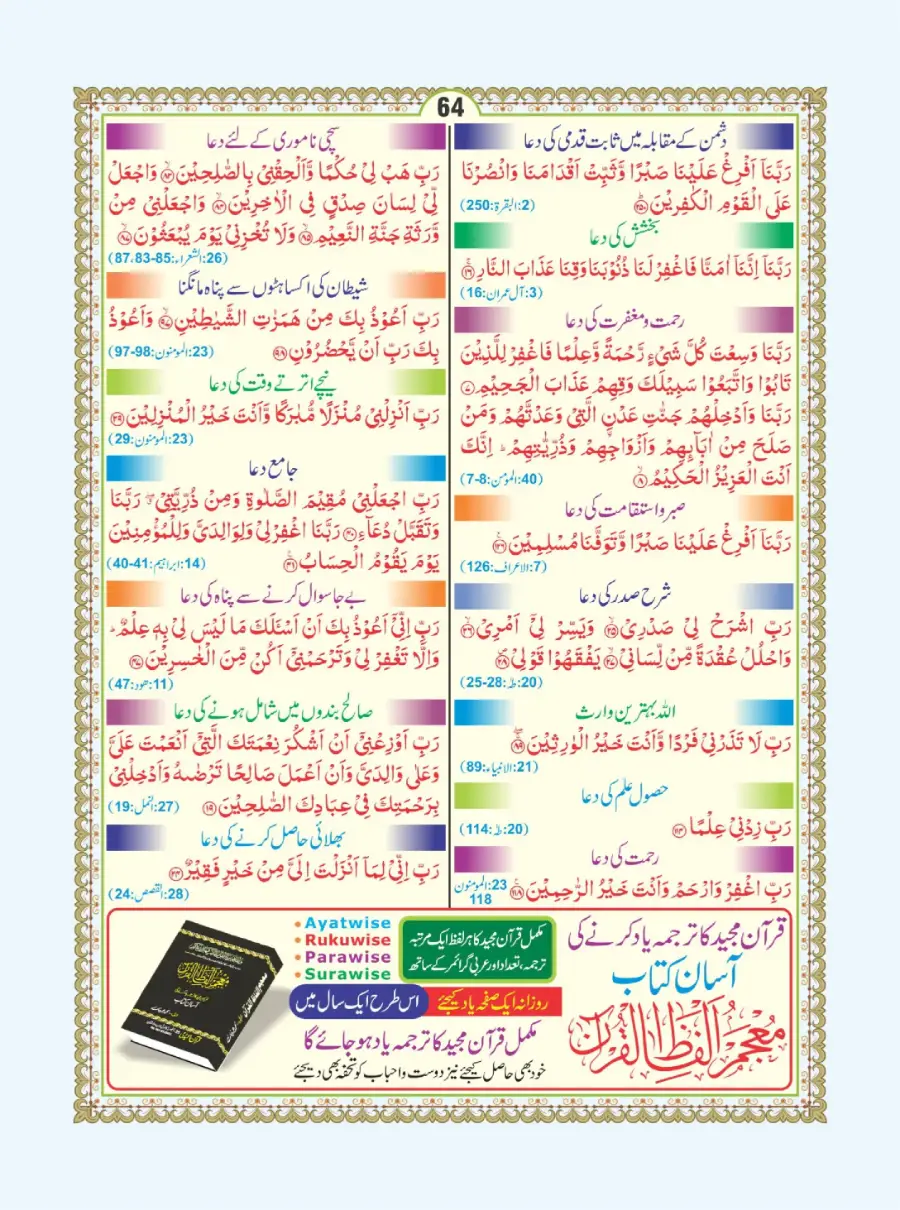 64
دشمن کے مقابلہ میں ثابت قدمی کی دعا
رَبَّنَاۤ اَفْرِغْ عَلَيْنَا صَبْرًا وَّثَبِّتْ اَقْدَامَنَا وَانْصُرْنَا
عَلَى الْقَوْمِ الْكٰفِرِيْنَ ۟ؕ۲۵۰ (2:البقرة:250)
بخشش کی دعا
رَبَّنَاۤ اِنَّنَاۤ اٰمَنَّا فَاغْفِرْ لَنَا ذُنُوْبَنَا وَقِنَا عَذَابَ النَّارِ ۱۶
(3:آل عمران:16)
رحمت و مغفرت کی دعا
رَبَّنَا وَسِعْتَ كُلَّ شَیْءٍ رَّحْمَةً وَّعِلْمًا فَاغْفِرْ لِلَّذِيْنَ
تَابُوْا وَاتَّبَعُوْا سَبِيْلَكَ وَقِهِمْ عَذَابَ الْجَحِيْمِ ۷
رَبَّنَا وَاَدْخِلْهُمْ جَنّٰتِ عَدْنِ اۨلَّتِیْ وَعَدْتَّهُمْ وَمَنْ
صَلَحَ مِنْ اٰبَآىِٕهِمْ وَاَزْوَاجِهِمْ وَذُرِّيّٰتِهِمْ ؕ اِنَّكَ
اَنْتَ الْعَزِيْزُ الْحَكِيْمُ ۸ (40:المؤمن:8-7)
صبر و استقامت کی دعا
رَبَّنَاۤ اَفْرِغْ عَلَيْنَا صَبْرًا وَّتَوَفَّنَا مُسْلِمِيْنَ ۱۲۶
(7:الاعراف:126)
شرح صدر کی دعا
رَبِّ اشْرَحْ لِیْ صَدْرِیْ ۲۵ وَيَسِّرْ لِیْۤ اَمْرِیْ ۲۶
وَاحْلُلْ عُقْدَةً مِّنْ لِّسَانِیْ ۲۷ يَفْقَهُوْا قَوْلِیْ ۲۸
(20:طٰہٰ:28-25)
اللہ بہترین وارث
رَبِّ لَا تَذَرْنِیْ فَرْدًا وَّاَنْتَ خَيْرُ الْوٰرِثِيْنَ ۸۹
(21:الانبياء:89)
حصول علم کی دعا
رَبِّ زِدْنِیْ عِلْمًا ۱۱۴ (20:طٰہٰ:114)
رحمت کی دعا
رَبِّ اغْفِرْ وَارْحَمْ وَاَنْتَ خَيْرُ الرّٰحِمِيْنَ ۱۱۸ 23:المومنون
118
سچی ناموری کے لئے دعا
رَبِّ هَبْ لِیْ حُكْمًا وَّاَلْحِقْنِیْ بِالصّٰلِحِيْنَ ۸۳ وَاجْعَلْ
لِّیْ لِسَانَ صِدْقٍ فِی الْاٰخِرِيْنَ ۸۴ وَاجْعَلْنِیْ مِنْ
وَّرَثَةِ جَنَّةِ النَّعِيْمِ ۸۵ وَلَا تُخْزِنِیْ يَوْمَ يُبْعَثُوْنَ ۸۷
(26:الشعراء:85-83، 87)
شیطان کی اکساہٹوں سے پناہ مانگنا
رَبِّ اَعُوْذُ بِكَ مِنْ هَمَزٰتِ الشَّيٰطِيْنِ ۹۷ وَاَعُوْذُ
بِكَ رَبِّ اَنْ يَّحْضُرُوْنِ ۹۸ (23:المومنون:98-97)
نیچے اترتے وقت کی دعا
رَبِّ اَنْزِلْنِیْ مُنْزَلًا مُّبٰرَكًا وَّاَنْتَ خَيْرُ الْمُنْزِلِيْنَ ۲۹
(23:المومنون:29)
جامع دعا
رَبِّ اجْعَلْنِیْ مُقِيْمَ الصَّلٰوةِ وَمِنْ ذُرِّيَّتِیْ ۖۗ رَبَّنَا
وَتَقَبَّلْ دُعَآءِ ۴۰ رَبَّنَا اغْفِرْ لِیْ وَلِوَالِدَیَّ وَلِلْمُؤْمِنِيْنَ
يَوْمَ يَقُوْمُ الْحِسَابُ ۴۱ (14:ابراہیم:41-40)
بے جا سوال کرنے سے پناہ کی دعا
رَبِّ اِنِّیْۤ اَعُوْذُ بِكَ اَنْ اَسْـَٔلَكَ مَا لَيْسَ لِیْ بِهٖ عِلْمٌ ؕ
وَاِلَّا تَغْفِرْ لِیْ وَتَرْحَمْنِیْۤ اَكُنْ مِّنَ الْخٰسِرِيْنَ ۴۷
(11:ھود:47)
صالح بندوں میں شامل ہونے کی دعا
رَبِّ اَوْزِعْنِیْۤ اَنْ اَشْكُرَ نِعْمَتَكَ الَّتِیْۤ اَنْعَمْتَ عَلَیَّ
وَعَلٰی وَالِدَیَّ وَاَنْ اَعْمَلَ صَالِحًا تَرْضٰىهُ وَاَدْخِلْنِیْ
بِرَحْمَتِكَ فِیْ عِبَادِكَ الصّٰلِحِيْنَ ۱۹ (27:النمل:19)
بھلائی حاصل کرنے کی دعا
رَبِّ اِنِّیْ لِمَاۤ اَنْزَلْتَ اِلَیَّ مِنْ خَيْرٍ فَقِيْرٌ ۲۴
(28:القصص:24)
قرآن مجید کا ترجمہ یاد کرنے کی
آسان کتاب
معجم الفاظ القرآن
مکمل قرآن مجید کا ہر لفظ ایک مرتبہ
ترجمہ، تعداد اور عربی گرائمر کے ساتھ
• Ayatwise
• Rukuwise
• Parawise
• Surawise
روزانہ ایک صفحہ یاد کیجئے اس طرح ایک سال میں
مکمل قرآن مجید کا ترجمہ یاد ہو جائے گا
خود بھی حاصل کیجئے نیز دوست و احباب کو تحفہ بھی دیجئے
معجم الفاظ القرآن
آسان کتاب